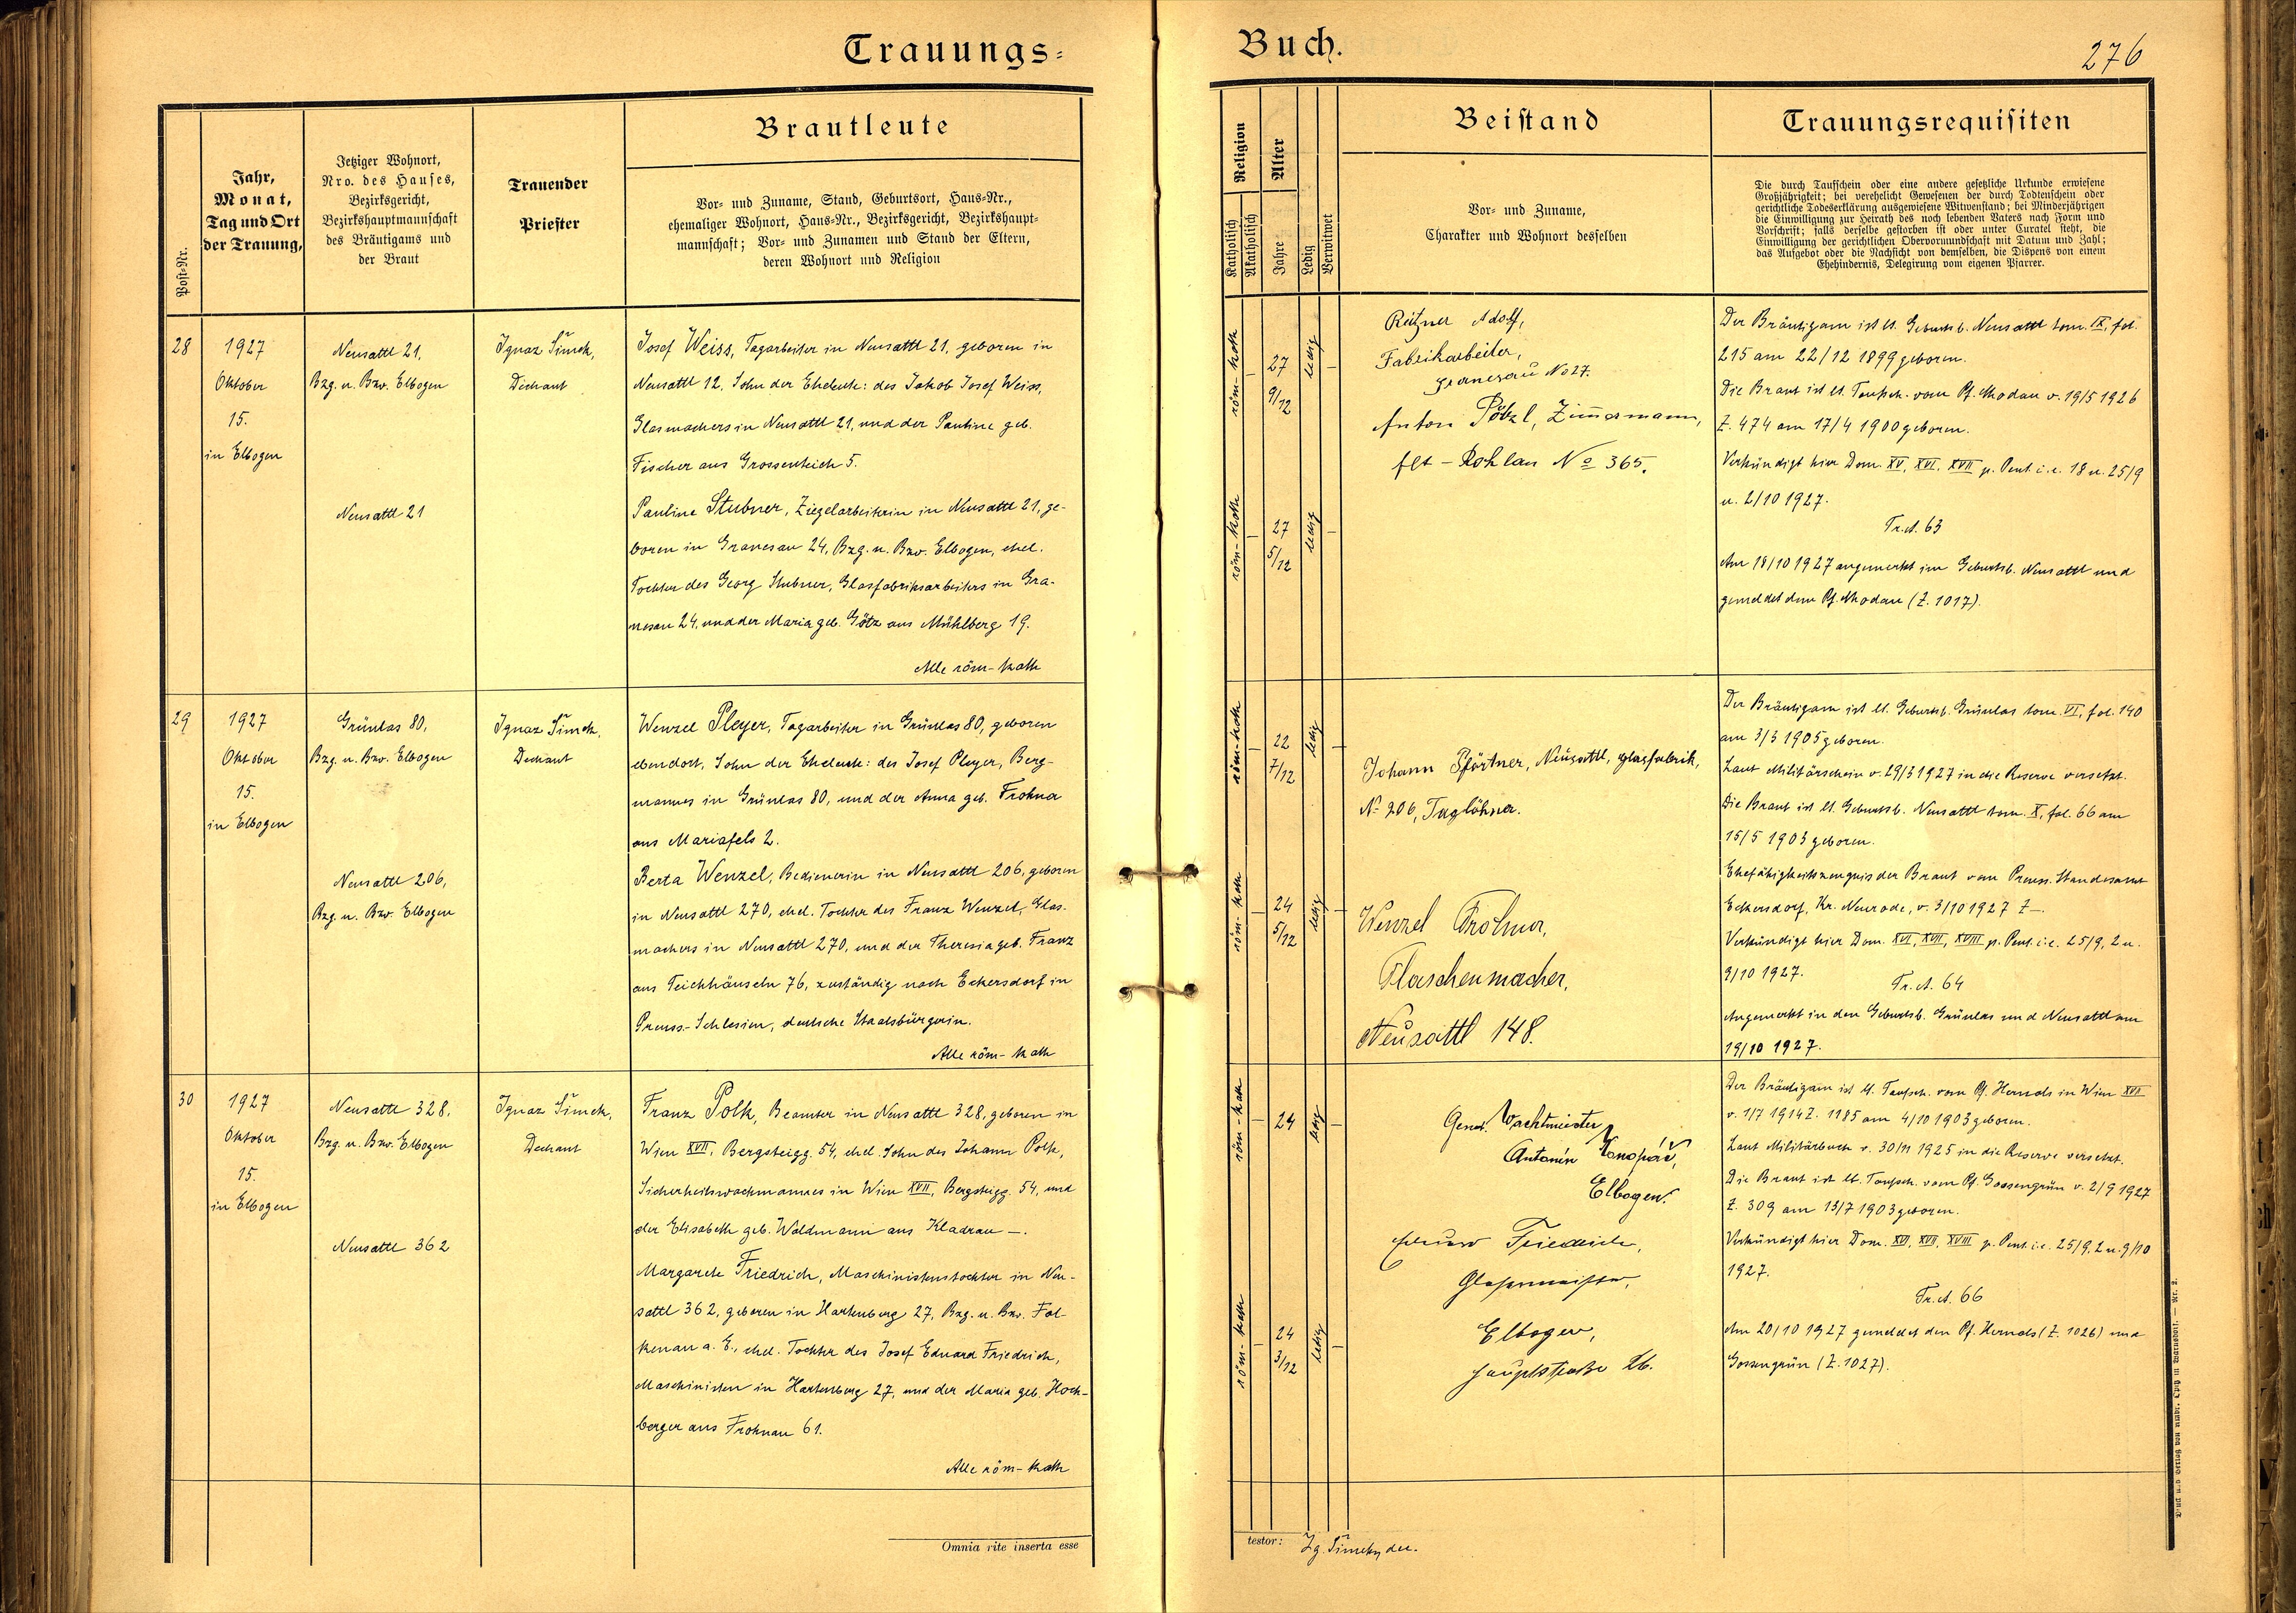 Trauungs-
Buch.
276
Post-Nr.
Jahr,
Monat,
Tag und Ort
der Trauung,
Jetziger Wohnort,
Nro. des Hauses,
Bezirksgericht,
Bezirkshauptmannschaft
des Bräutigams und
der Braut
Trauender
Priester
Brautleute
Vor- und Zuname, Stand, Geburtsort, Haus-Nr.,
ehemaliger Wohnort, Haus-Nr., Bezirksgericht, Bezirkshaupt-
mannschaft; Vor- und Zunamen und Stand der Eltern,
deren Wohnort und Religion
Religion
Katholisch
Akatholisch
Alter
Jahre
Ledig
Verwitwet
Beistand
Vor- und Zuname,
Charakter und Wohnort desselben
Trauungsrequisiten
Die durch Taufschein oder eine andere gesetzliche Urkunde erwiesene
Großjährigkeit; bei verehelicht Gewesenen der durch Todtenschein oder
gerichtliche Todeserklärung ausgewiesene Witwenstand; bei Minderjährigen
die Einwilligung zur Heirath des noch lebenden Vaters nach Form und
Vorschrift; falls derselbe gestorben ist oder unter Curatel steht, die
Einwilligung der gerichtlichen Obervormundschaft mit Datum und Zahl;
das Aufgebot oder die Nachsicht von demselben, die Dispens von einem
Ehehindernis, Delegirung vom eigenen Pfarrer.
28
1927
Oktober
15.
in Elbogen
Neusattl 21,
Bzg. u. Bzv. Elbogen
Neusattl 21
Ignaz Šimek,
Dechant
Josef Weiss, Tagarbeiter in Neusattl 21, geboren in
Neusattl 12, Sohn der Eheleute: des Jakob Josef Weiss,
Glasmachers in Neusattl 21, und der Pauline geb.
Fischer aus Grossenteich 5.
Pauline Stubner, Ziegelarbeiterin in Neusattl 21, ge-
boren in Granesau 24, Bzg. u. Bzv. Elbogen, ehel.
Tochter des Georg Stubner, Glasfabriksarbeiters in Gra-
nesau 24, und der Maria geb. Götz aus Mühlberg 19.
Alle röm-kath
röm-kath
27
9/12
ledig
röm-kath
27
5/12
ledig
Adolf,
Fabrikarbeiter,
Granesau No 27.
Anton Pötzl, Zimmermann,
Alt-Rohlau No 365.
Der Bräutigam ist lt. Geburtsb. Neusattl tom. IX, fol.
215 am 22/12 1899 geboren.
Die Braut ist lt. Taufsch. vom Pf. Chodau v. 19/5 1926
Z. 474 am 17/4 1900 geboren.
Verkündigt hier Dom. XV, XVI, XVII p. Pent. i.e. 18 u. 25/9
u. 2/10 1927.
Tr. A. 63
Am 18/10 1927 angemerkt im Geburtsb. Neusattl und
gemeldet dem Pf. Chodau (Z. 1017).
29
1927
Oktober
15.
in Elbogen
Grünlas 80,
Bzg. u. Bzv. Elbogen
Neusattl 206,
Bzg. u. Bzv. Elbogen
Ignaz Šimek,
Dechant
Wenzel Pleyer, Tagarbeiter in Grünlas 80, geboren
ebendort, Sohn der Eheleute: des Josef Pleyer, Berg-
mannes in Grünlas 80, und der Anna geb. Frohna
aus Mariafels 2.
Berta Wenzel, Bedienerin in Neusattl 206, geboren
in Neusattl 270, ehel. Tochter des Franz Wenzel, Glas-
machers in Neusattl 270, und der Theresia geb. Franz
aus Teichhäuseln 76, zuständig nach Eckersdorf in
Preuss.-Schlesien, deutsche Staatsbürgerin.
Alle röm-kath
röm-kath
22
7/12
ledig
röm-kath
24
5/12
ledig
Johann Pförtner, Neusattl, Glasfabrik,
No 206, Taglöhner.
Wenzel
Flaschenmacher,
Neusattl 148.
Der Bräutigam ist lt. Geburtsb. Grünlas tom. VI, fol. 140
am 3/3 1905 geboren.
Laut Militärschein v. 29/3 1927 in die Reserve versetzt.
Die Braut ist lt. Geburtsb. Neusattl tom. X, fol. 66 am
15/5 1903 geboren.
Ehefähigkeitszeugnis der Braut vom Preuss. Standesamt
Eckersdorf, Kr. Neurode, v. 3/10 1927 Z —.
Verkündigt hier Dom. XVI, XVII, XVIII p. Pent. i.e. 25/9, 2 u.
9/10 1927.
Tr. A. 64
Angemerkt in den Geburtsb. Grünlas und Neusattl am
19/10 1927.
30
1927
Oktober
15.
in Elbogen
Neusattl 328,
Bzg. u. Bzv. Elbogen
Neusattl 362
Ignaz Šimek,
Dechant
Franz Polk, Beamter in Neusattl 328, geboren in
Wien XVII, Bergsteigg. 54, ehel. Sohn des Johann Polk,
Sicherheitswachmannes in Wien XVII, Bergsteigg. 54, und
der Elisabeth geb. Waldmann aus Kladrau —.
Margarete Friedrich, Maschinistenstochter in Neu-
sattl 362, geboren in Hartenberg 27, Bzg. u. Bzv. Fal-
kenau a. E., ehel. Tochter des Josef Eduard Friedrich,
Maschinisten in Hartenberg 27, und der Maria geb. Hoch-
berger aus Frohnau 61.
Alle röm-kath
röm-kath
24
ledig
röm-kath
24
3/12
ledig
Gend. Wachtmeister
Antonín Konopáč,
Elbogen.
Friedrich,
Glasermeister,
Elbogen,
Hauptstraße 26.
Der Bräutigam ist lt. Taufsch. vom Pf. Hernals in Wien XVII
v. 1/7 1914 Z. 1185 am 4/10 1903 geboren.
Laut Militärbuch v. 30/11 1925 in die Reserve versetzt.
Die Braut ist lt. Taufsch. vom Pf. Gossengrün v. 2/9 1927
Z. 309 am 13/7 1903 geboren.
Verkündigt hier Dom. XVI, XVII, XVIII p. Pent. i.e. 25/9, 2 u. 9/10
1927.
Tr. A. 66
Am 20/10 1927 gemeldet den Pf. Hernals (Z. 1026) und
Gossengrün (Z. 1027).
Omnia rite inserta esse
testor: Ig. Šimek, dec.